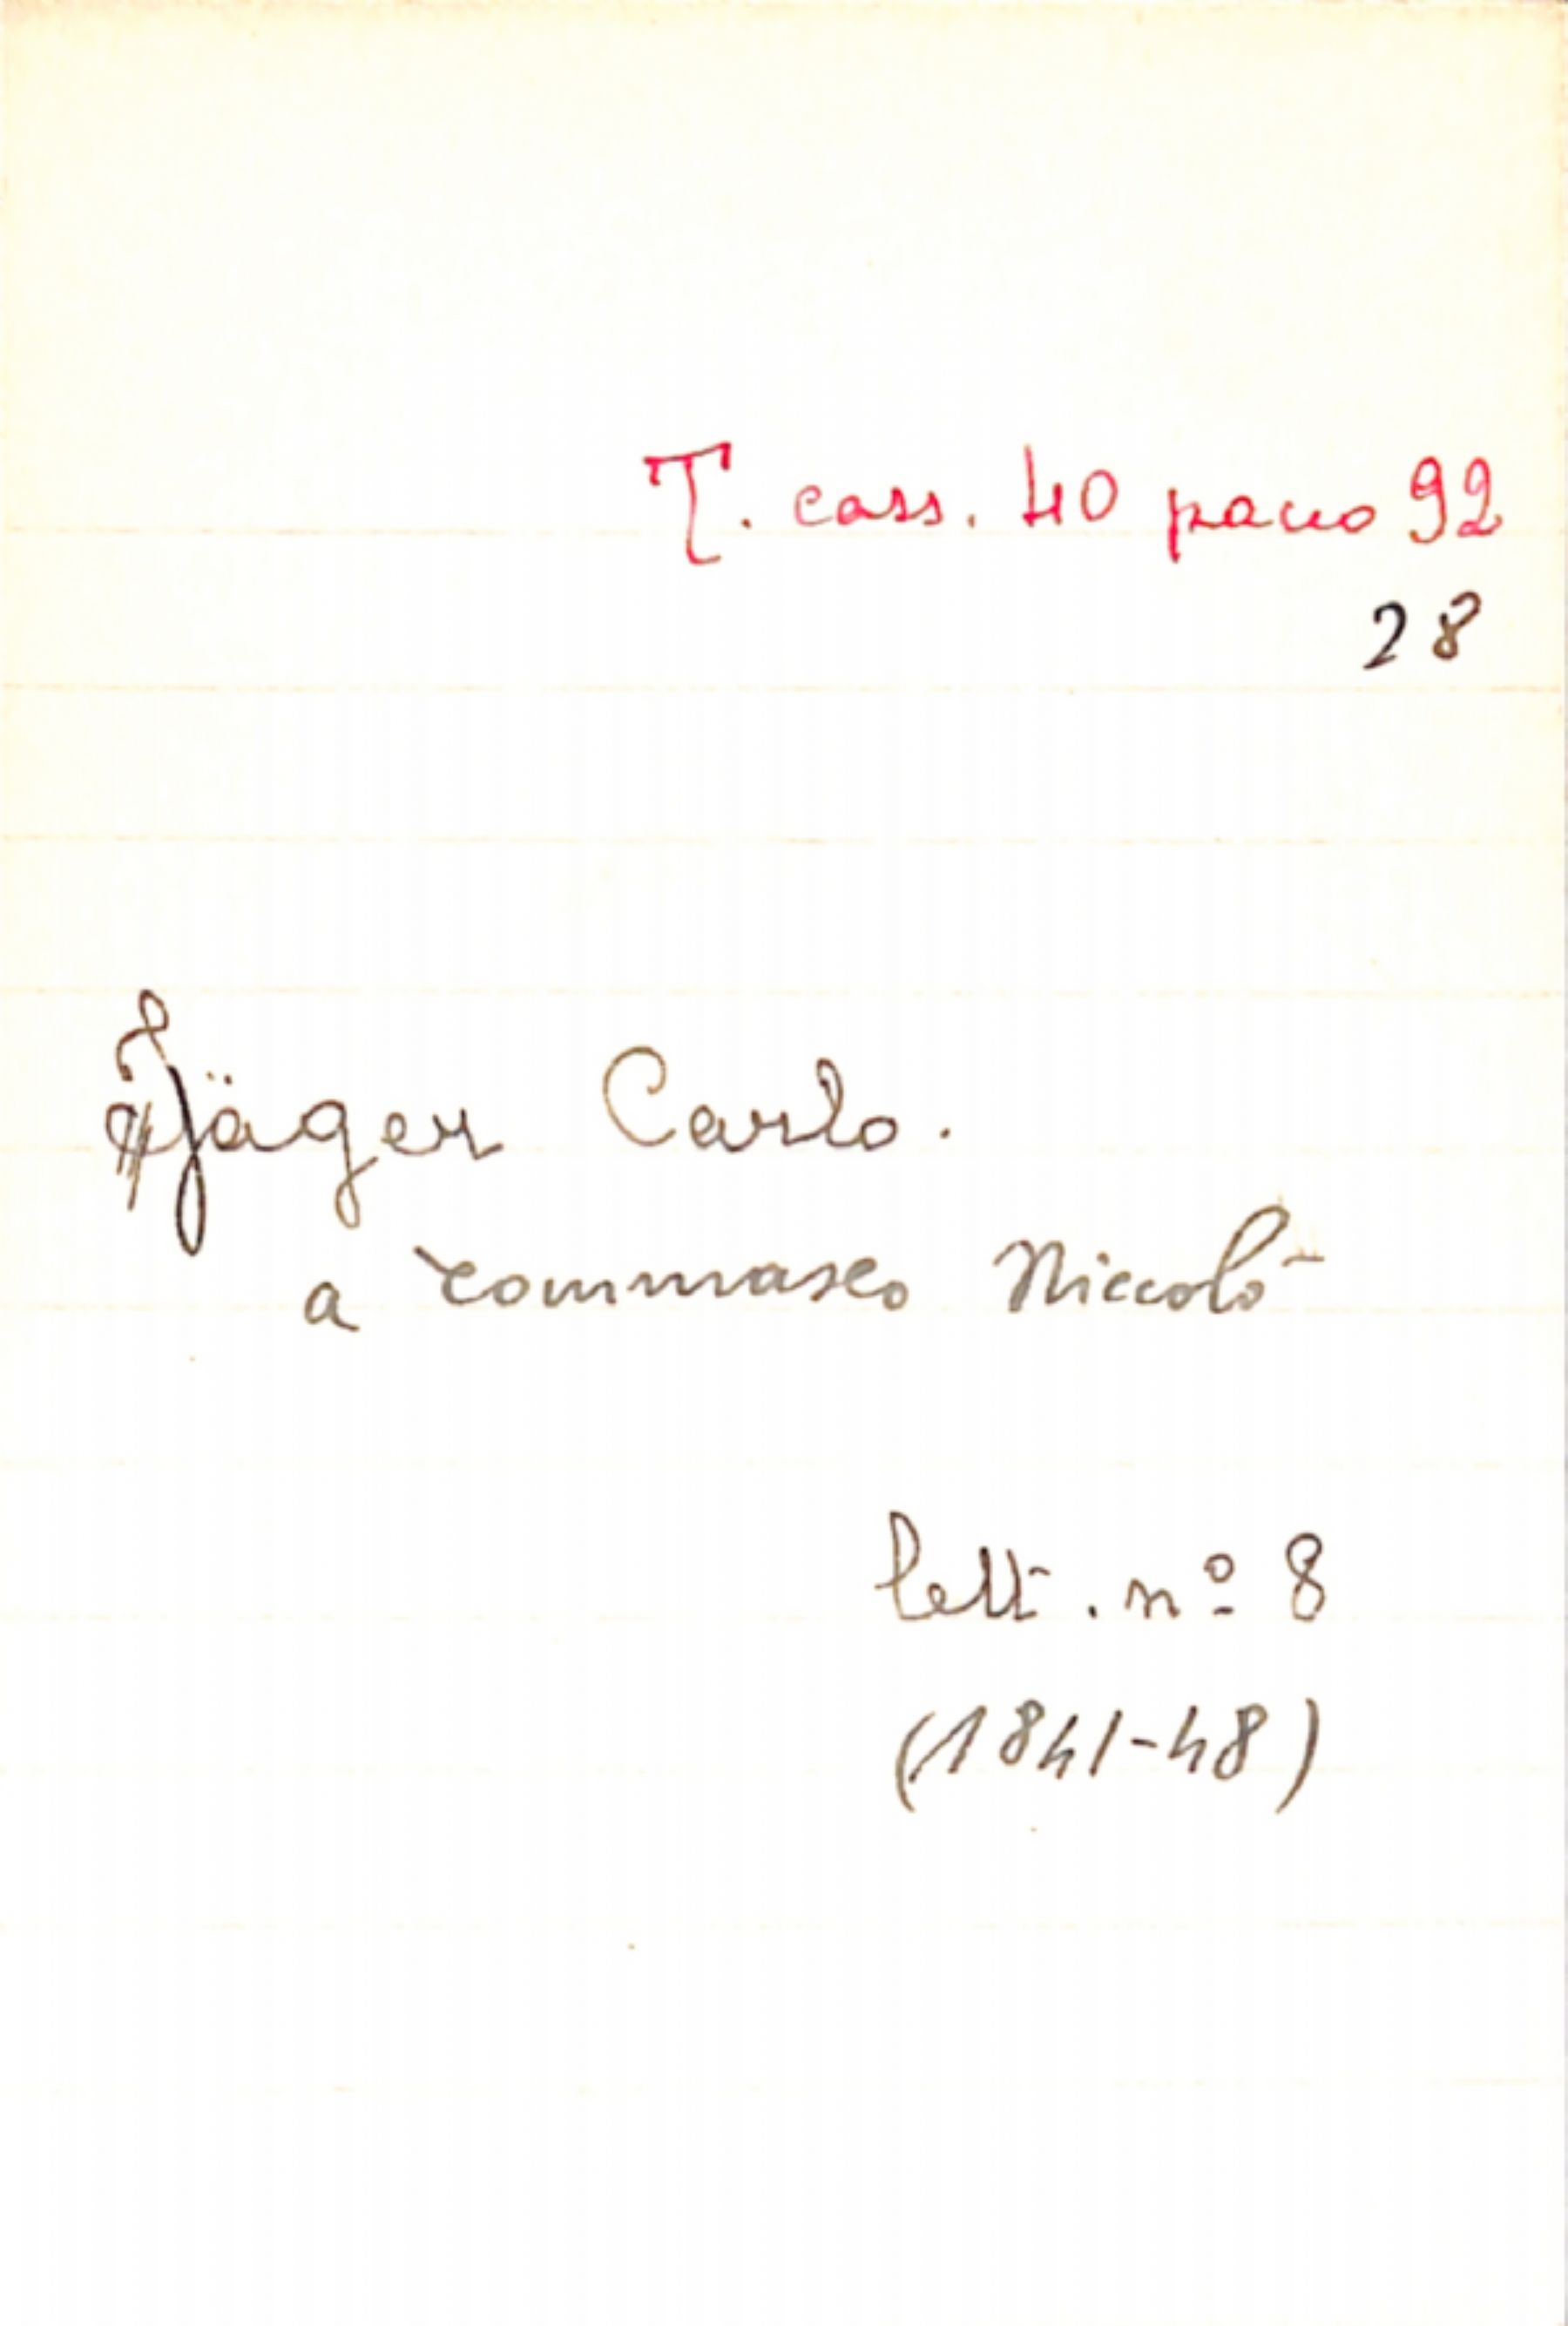 T. cass. 40 pacco 92
28
Jäger Carlo.
a Tommaseo Niccolò
lett. nº 8
(1841-48)